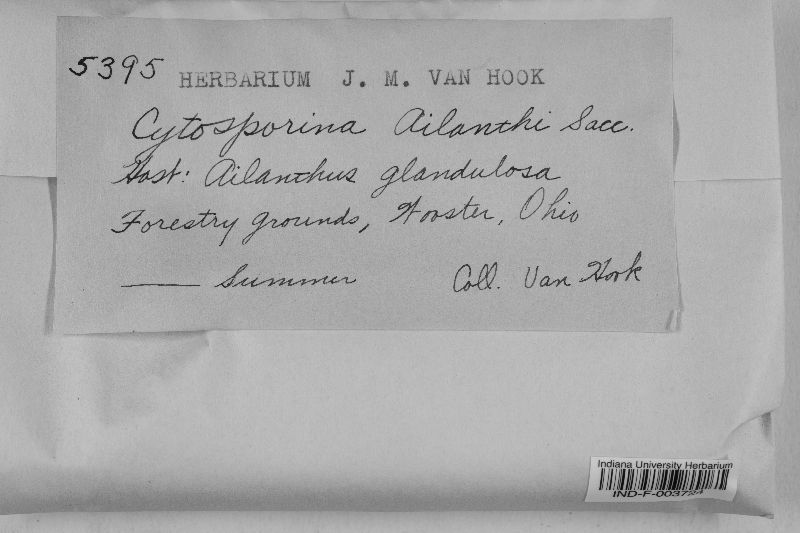 5395 HERBARIUM J. M. VAN HOOK
Cytosporina Ailanthi Sacc.
Host: Ailanthus glandulosa
Forestry grounds, Wooster, Ohio
—— Summer Coll. Van Hook
Indiana University Herbarium